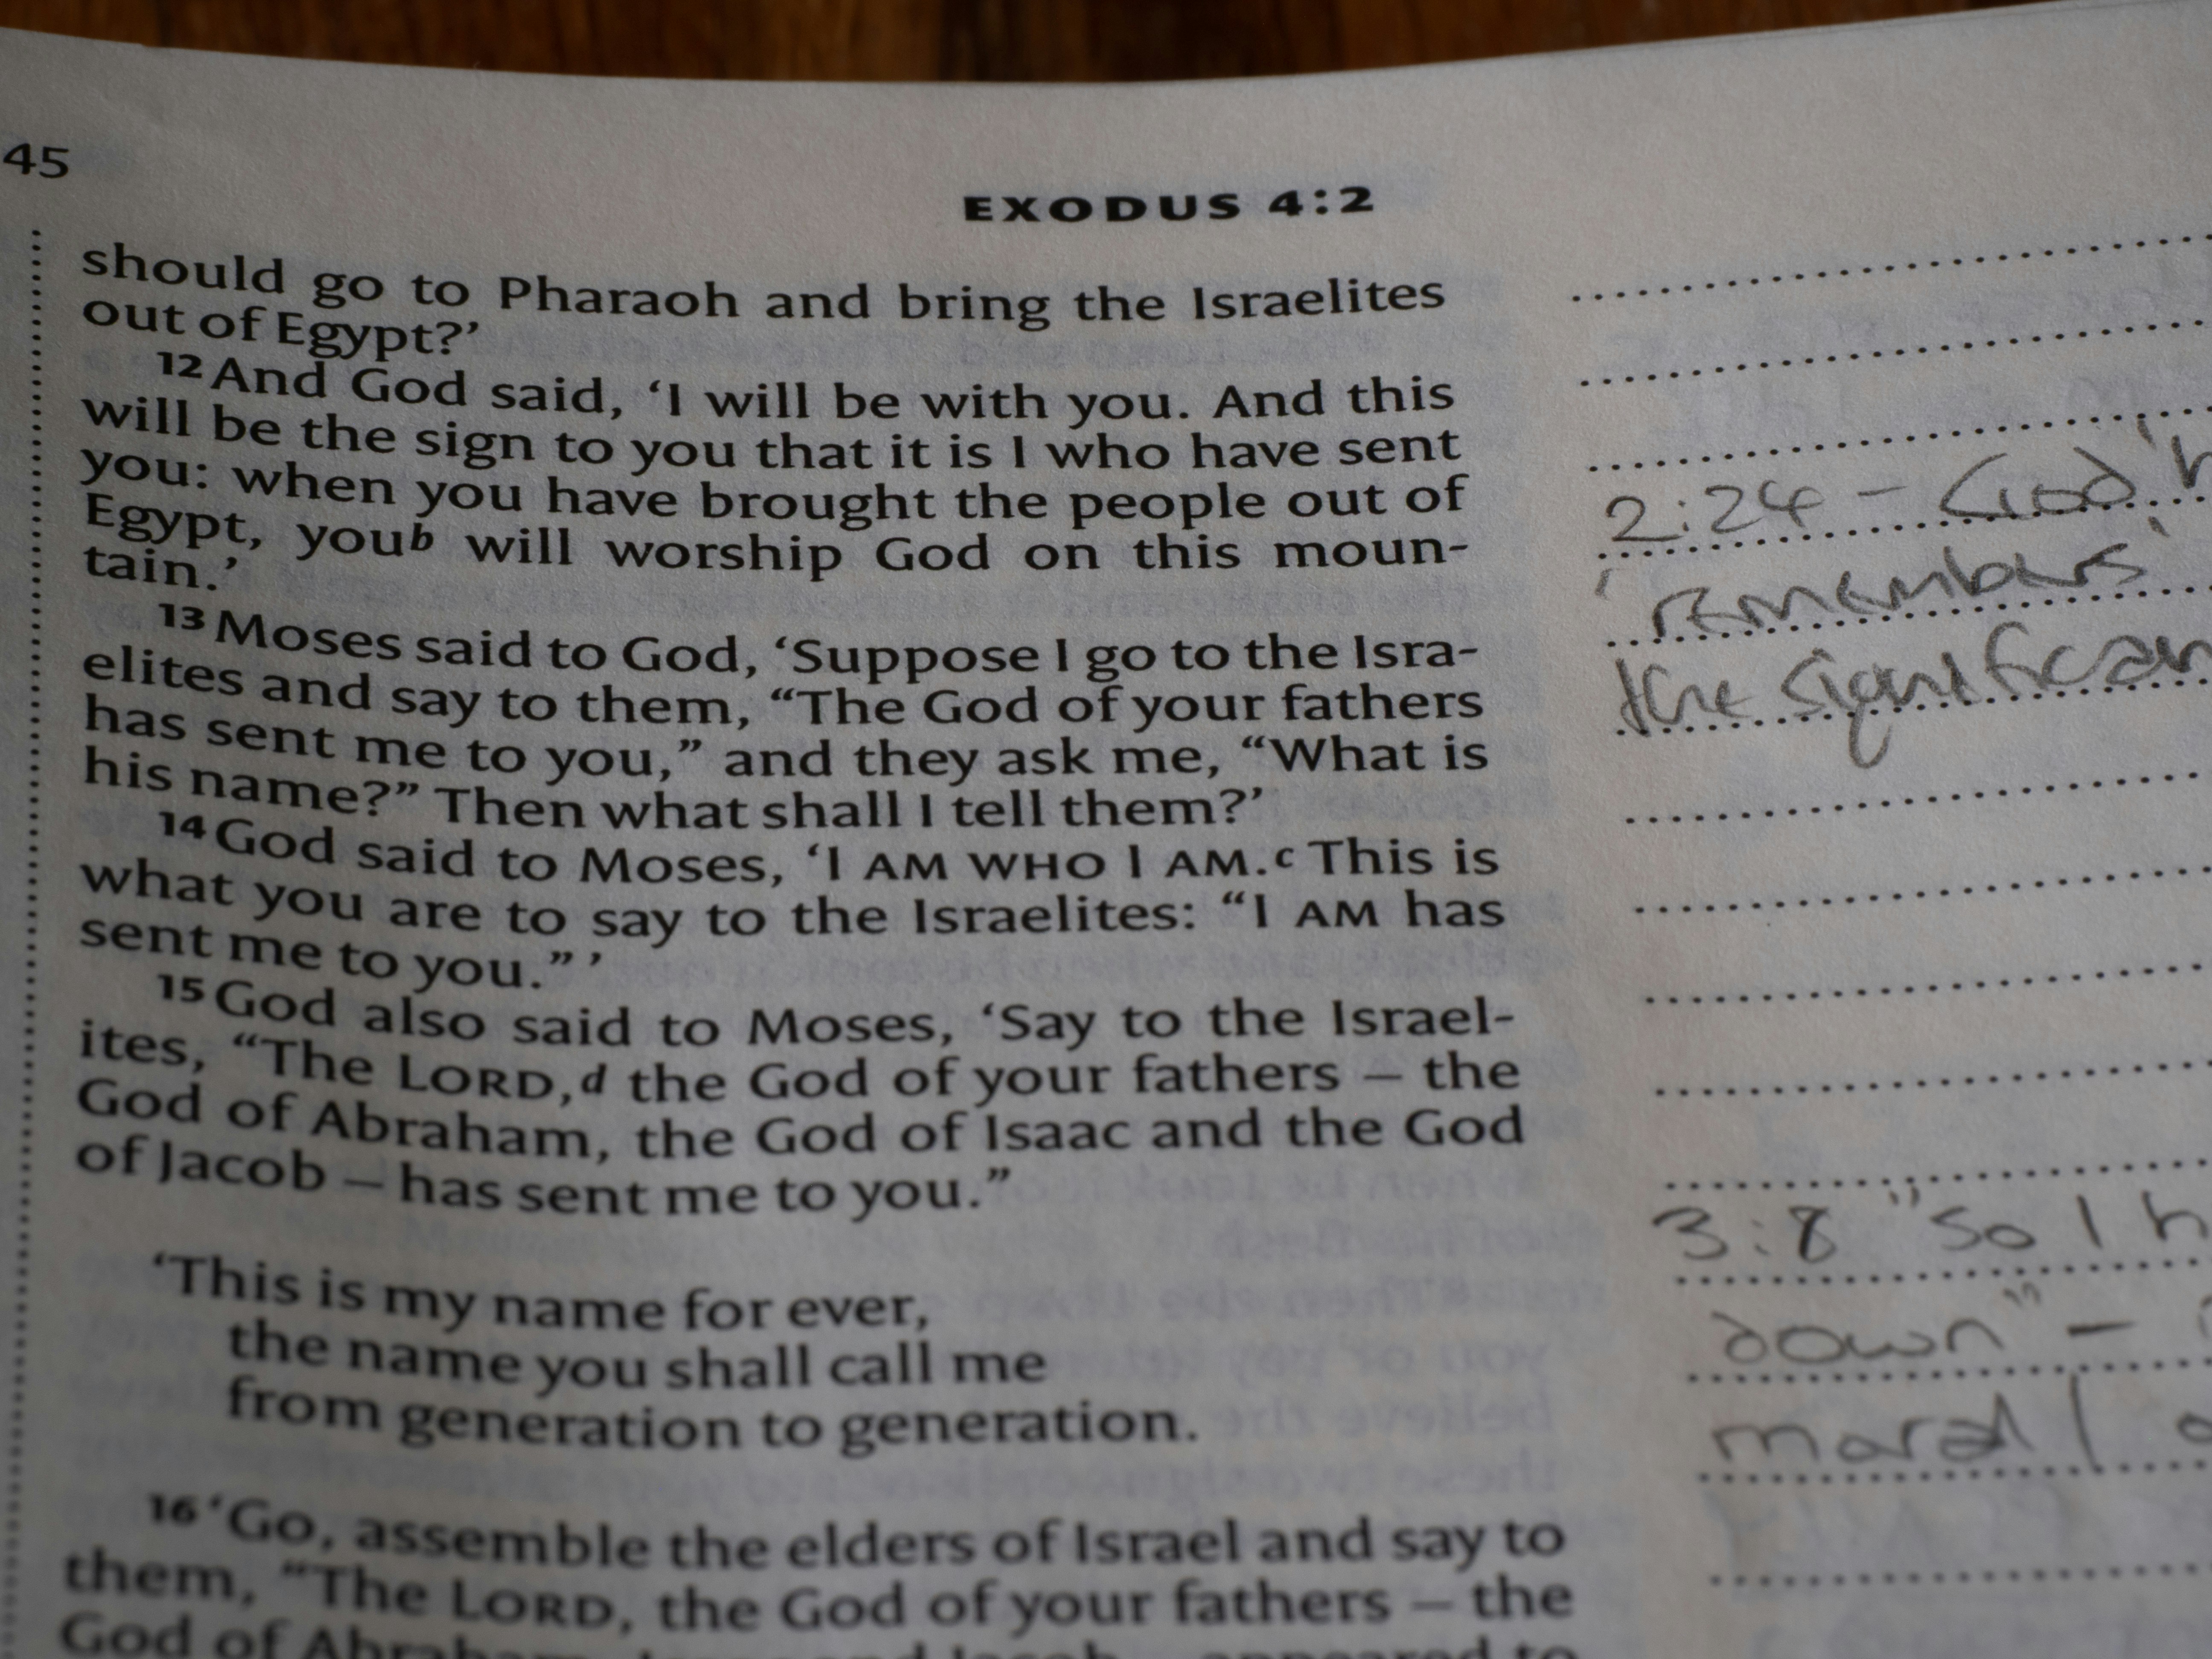 45
EXODUS 4:2
should go to Pharaoh and bring the Israelites
out of Egypt?’
12 And God said, ‘I will be with you. And this
will be the sign to you that it is I who have sent
you: when you have brought the people out of
Egypt, youb will worship God on this moun-
tain.’
13 Moses said to God, ‘Suppose I go to the Isra-
elites and say to them, “The God of your fathers
has sent me to you,” and they ask me, “What is
his name?” Then what shall I tell them?’
14 God said to Moses, ‘I AM WHO I AM.c This is
what you are to say to the Israelites: “I AM has
sent me to you.” ’
15 God also said to Moses, ‘Say to the Israel-
ites, “The LORD,d the God of your fathers – the
God of Abraham, the God of Isaac and the God
of Jacob – has sent me to you.”
‘This is my name for ever,
the name you shall call me
from generation to generation.
16 ‘Go, assemble the elders of Israel and say to
them, “The LORD, the God of your fathers – the
God of
2:24 – God
'remembers'
the
3:8 "So I h
down" –